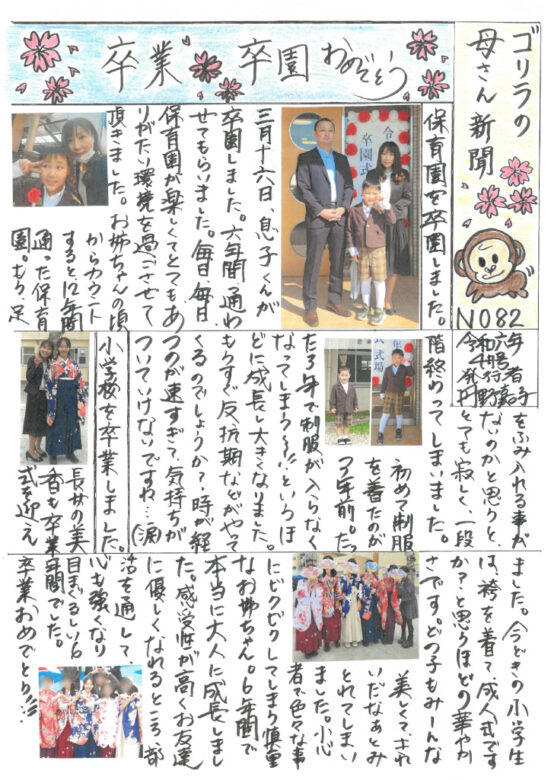 ゴリラの
母さん新聞
NO82
令和六年
4月号
発行者
卒業 卒園 おめでとう
保育園を卒園しました。
三月十六日、息子くんが
卒園しました。六年間通わ
せてもらいました。毎日毎日、
保育園が楽しくてとてもあ
りがたい環境を過ごさせて
頂きました。お姉ちゃんの頃
からカウント
すると12年間
通った保育
園。もう、足
をふみ入れる事が
ないのかと思うと、
とても寂しく、一段
階終わってしまいました。
初めて制服
を着たのが
3年前。たっ
た3年で制服が入らなく
なってしまう〜!!というほ
どに成長し大きくなりました。
もうすぐ反抗期などがやって
くるのでしょうか?時が経
つのが速すぎて、気持ちが
ついていけないですね…(涙)
小学校を卒業しました。
長女の美
香も卒業
式を迎え
ました。今どきの小学生
は、袴を着て、成人式です
か?と思うほどの華やか
さです。どの子もみーんな
美しくて、きれ
いだなぁとみ
とれてしまい
ました。小心
者で色々な事
にビクビクしてしまう慎重
なお姉ちゃん。6年間で
本当に大人に成長しまし
た。感受性が高くお友達
に優しくなれるところ、部
活を通して
心も強くなり
目まぐるしい6
年間でした。
卒業おめでとう!!!